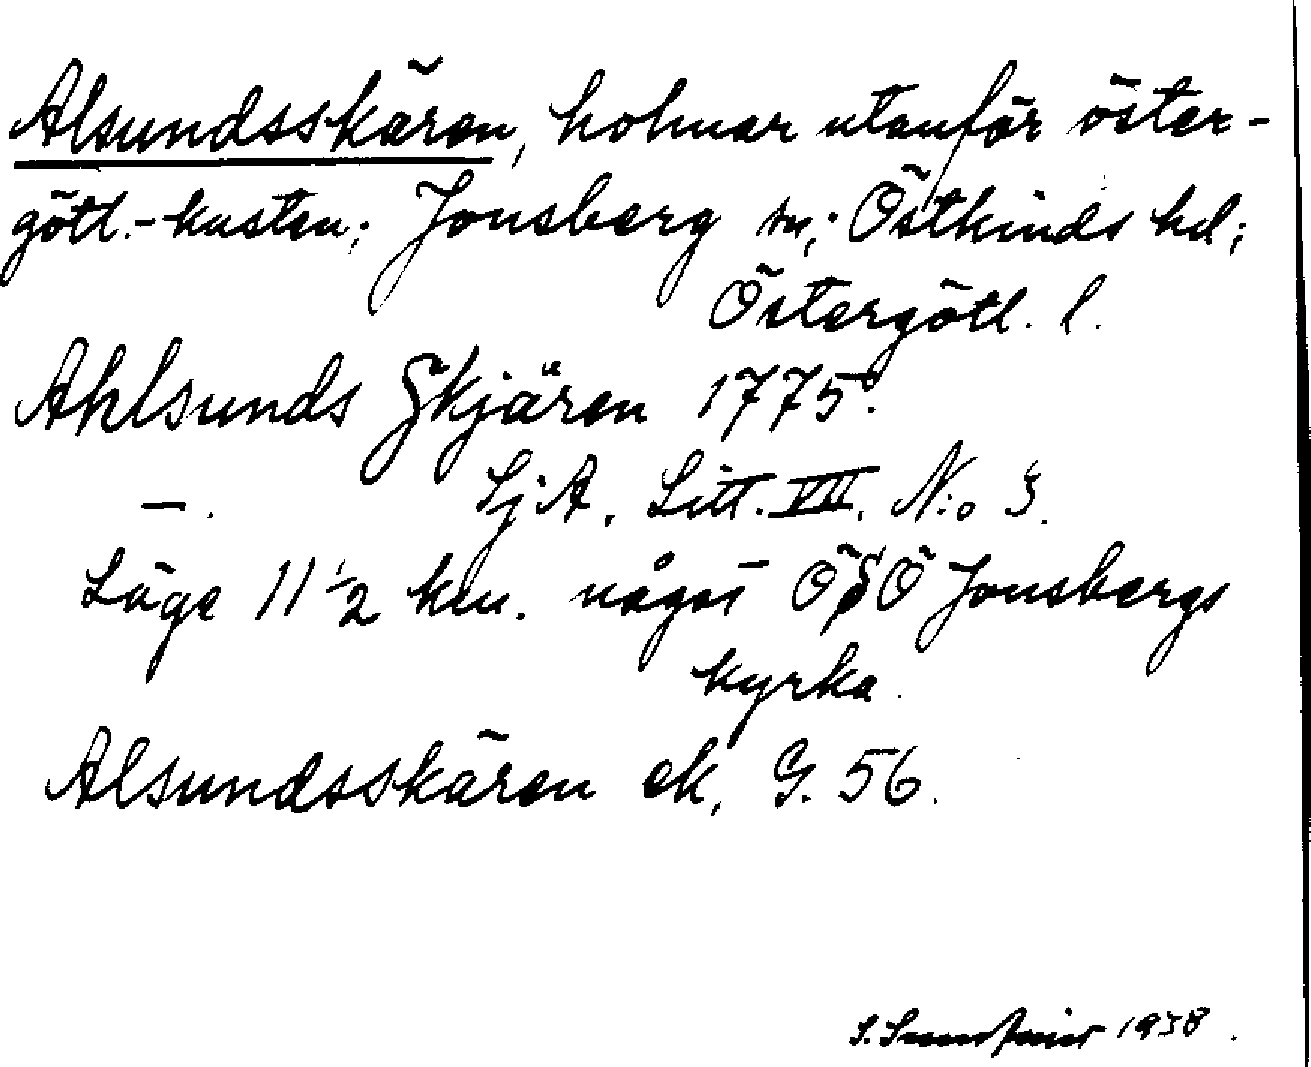 Alsundsskären, holmar utanför öster-
götl.-kusten; Jonsberg sn; Östkinds hd;
Östergötl. l.
Ahlsunds Skjären 1775.
—. SjA. Litt. VII. N:o 3.
Läge 11 1/2 km. något ÖSÖ Jonsbergs
kyrka.
Alsundsskären ek, G. 56.
S. 1938.